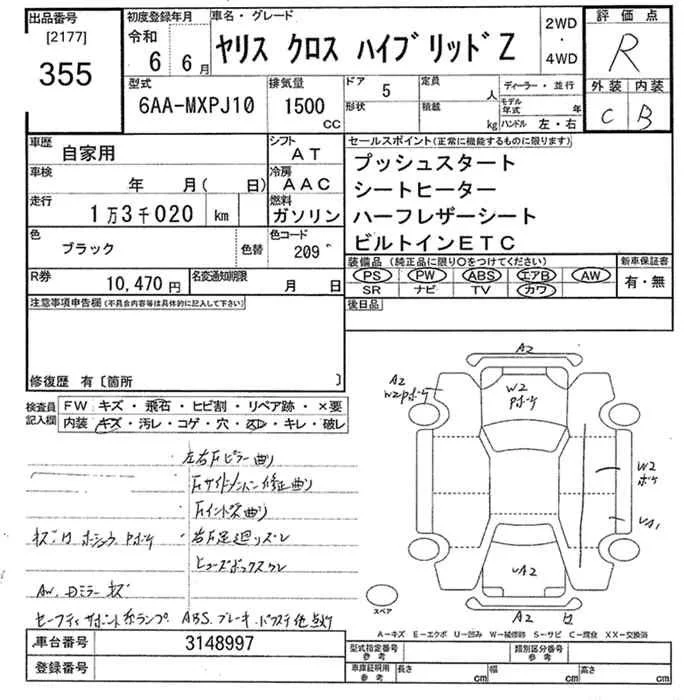 出品番号
[2177]
355
初度登録年月
令和
6 6月
車名・グレード
ヤリス クロス ハイブリッド Z
2WD
・
4WD
評価点
R
外装 内装
C B
型式
6AA-MXPJ10
排気量
1500
CC
ドア 5
形状
定員 人
積載 kg
ディーラー・並行
モデル年式 年
ハンドル 左・右
車歴
自家用
シフト
AT
車検
年 月( 日)
冷房
AAC
走行
1万3千020 km
燃料
ガソリン
色
ブラック
色替
色コード
209
R券
10,470 円
名変通知期限
月 日
セールスポイント(正常に機能するものに限ります)
プッシュスタート
シートヒーター
ハーフレザーシート
ビルトインETC
装備品 (純正品に限り○をつけてください)
PS PW ABS エアB AW
SR ナビ TV カワ
新車保証書
有・無
注意事項申告欄(不具合内容等は具体的に記入して下さい)
後日品
修復歴 有〔箇所 〕
検査員
記入欄
FW キズ・飛石・ヒビ割・リペア跡・×要
内装 キズ・汚レ・コゲ・穴・凹・キレ・破レ
左右Fピラー曲り
Fサイドメンバー修正曲り
Fインサイド曲り
右F足廻りズレ
ヒューズボックスワレ
AW、Dミラー キズ
セーフティサポート系ランプ ABS ブレーキ
A2
A2
W2
W2
W2
UA1
UA2
A2
スペア
A-キズ E-エクボ U-凹み W-補修跡 S-サビ C-腐食 XX-交換済
車台番号
3148997
登録番号
型式指定番号
参考
類別区分番号
参考
車庫証明用
参考
長さ cm
幅 cm
高さ cm